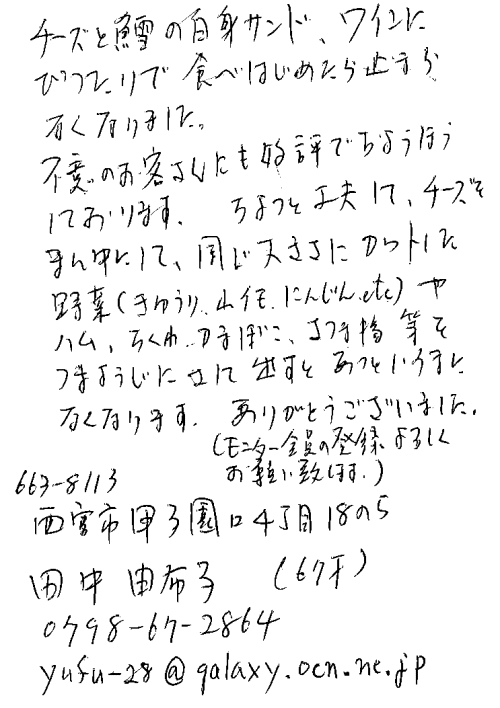 チーズと鱈の白身サンド、ワインに
ぴったりで食べはじめたら止まら
なくなりました。
不意のお客さんにも好評でちょうほう
しております。 ちょっと工夫して、チーズを
まん中にして、同じ大きさにカットした
野菜(きゅうり、山イモ、にんじん、etc)や
ハム、ちくわ、かまぼこ、さつま揚 等を
つまようじにさして出すとあっというまに
なくなります。 ありがとうございました。
(モニター会員の登録よろしく
お願い致します。)
663-8113
西宮市甲子園口4丁目18の5
田中 由布子 (67才)
0798-67-2864
yufu-28@galaxy.ocn.ne.jp